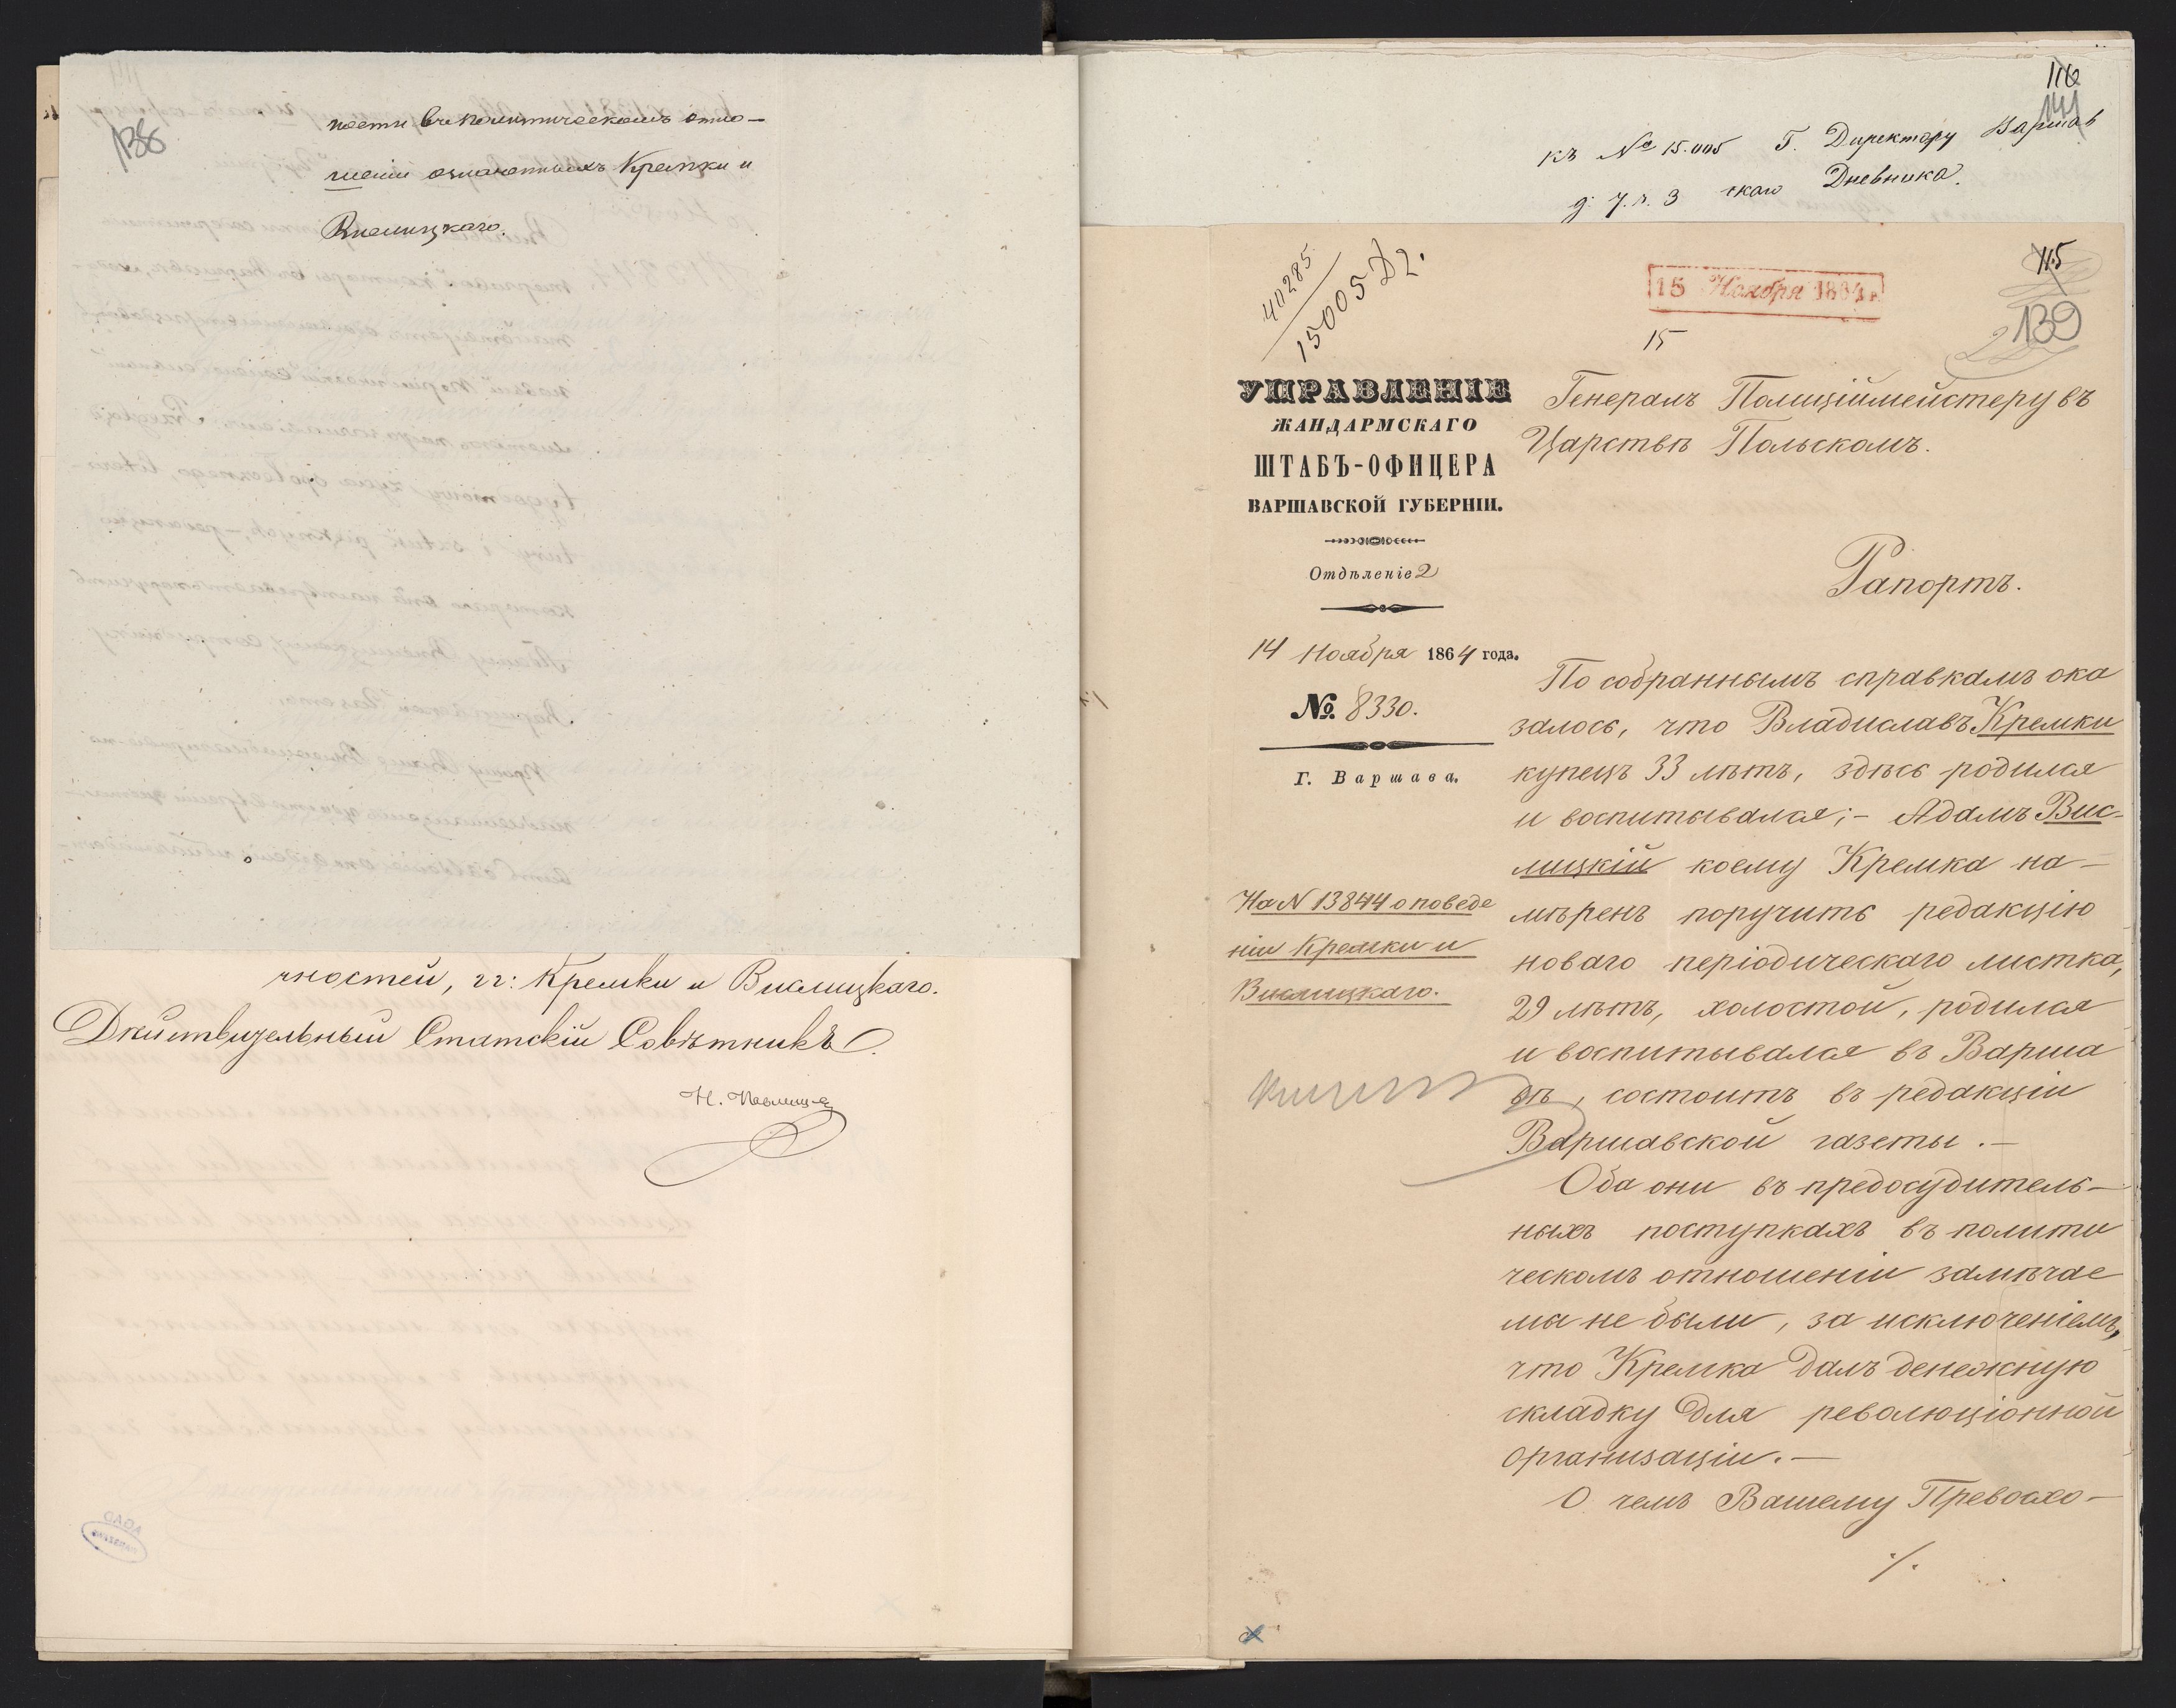 138
ности въ политическомъ отно-
шеніи означенныхъ Кремки и
Вислицкаго.
чностей, гг: Кремки и Вислицкаго.
Дѣйствительный Статскій Совѣтникъ
Н. Павлищ
116
141
къ № 15.005 Г. Директору Варшав
д. 7. р. 3 скаго Дневника.
40285
15005 Д2.
15 Ноября 1864
115
15
139
УПРАВЛЕНІЕ
ЖАНДАРМСКАГО
ШТАБЪ-ОФИЦЕРА
ВАРШАВСКОЙ ГУБЕРНІИ.
Отдѣленіе 2
14 Ноября 1864 года.
№. 8330.
Г. Варшава.
На N 13844 о поведе
ніи Кремки и
Вислицкаго.
Генералъ Полиціймейстеру въ
Царствѣ Польскомъ.
Рапортъ.
По собраннымъ справкамъ ока
залось, что Владиславъ Кремки
купецъ 33 лѣтъ, здѣсь родился
и воспитывался;- Адамъ Вис-
лицкій коему Кремка на-
мѣренъ поручить редакцію
новаго періодическаго листка,
29 лѣтъ, холостой, родился
и воспитывался въ Варша
вѣ, состоитъ въ редакціи
Варшавской газеты.-
Оба они въ предосудитель-
ныхъ поступкахъ въ полити
ческомъ отношеніи замѣчае
мы не были, за исключеніемъ,
что Кремка далъ денежную
складку для революціонной
организаціи.-
О чемъ Вашему Превосхо-
./.